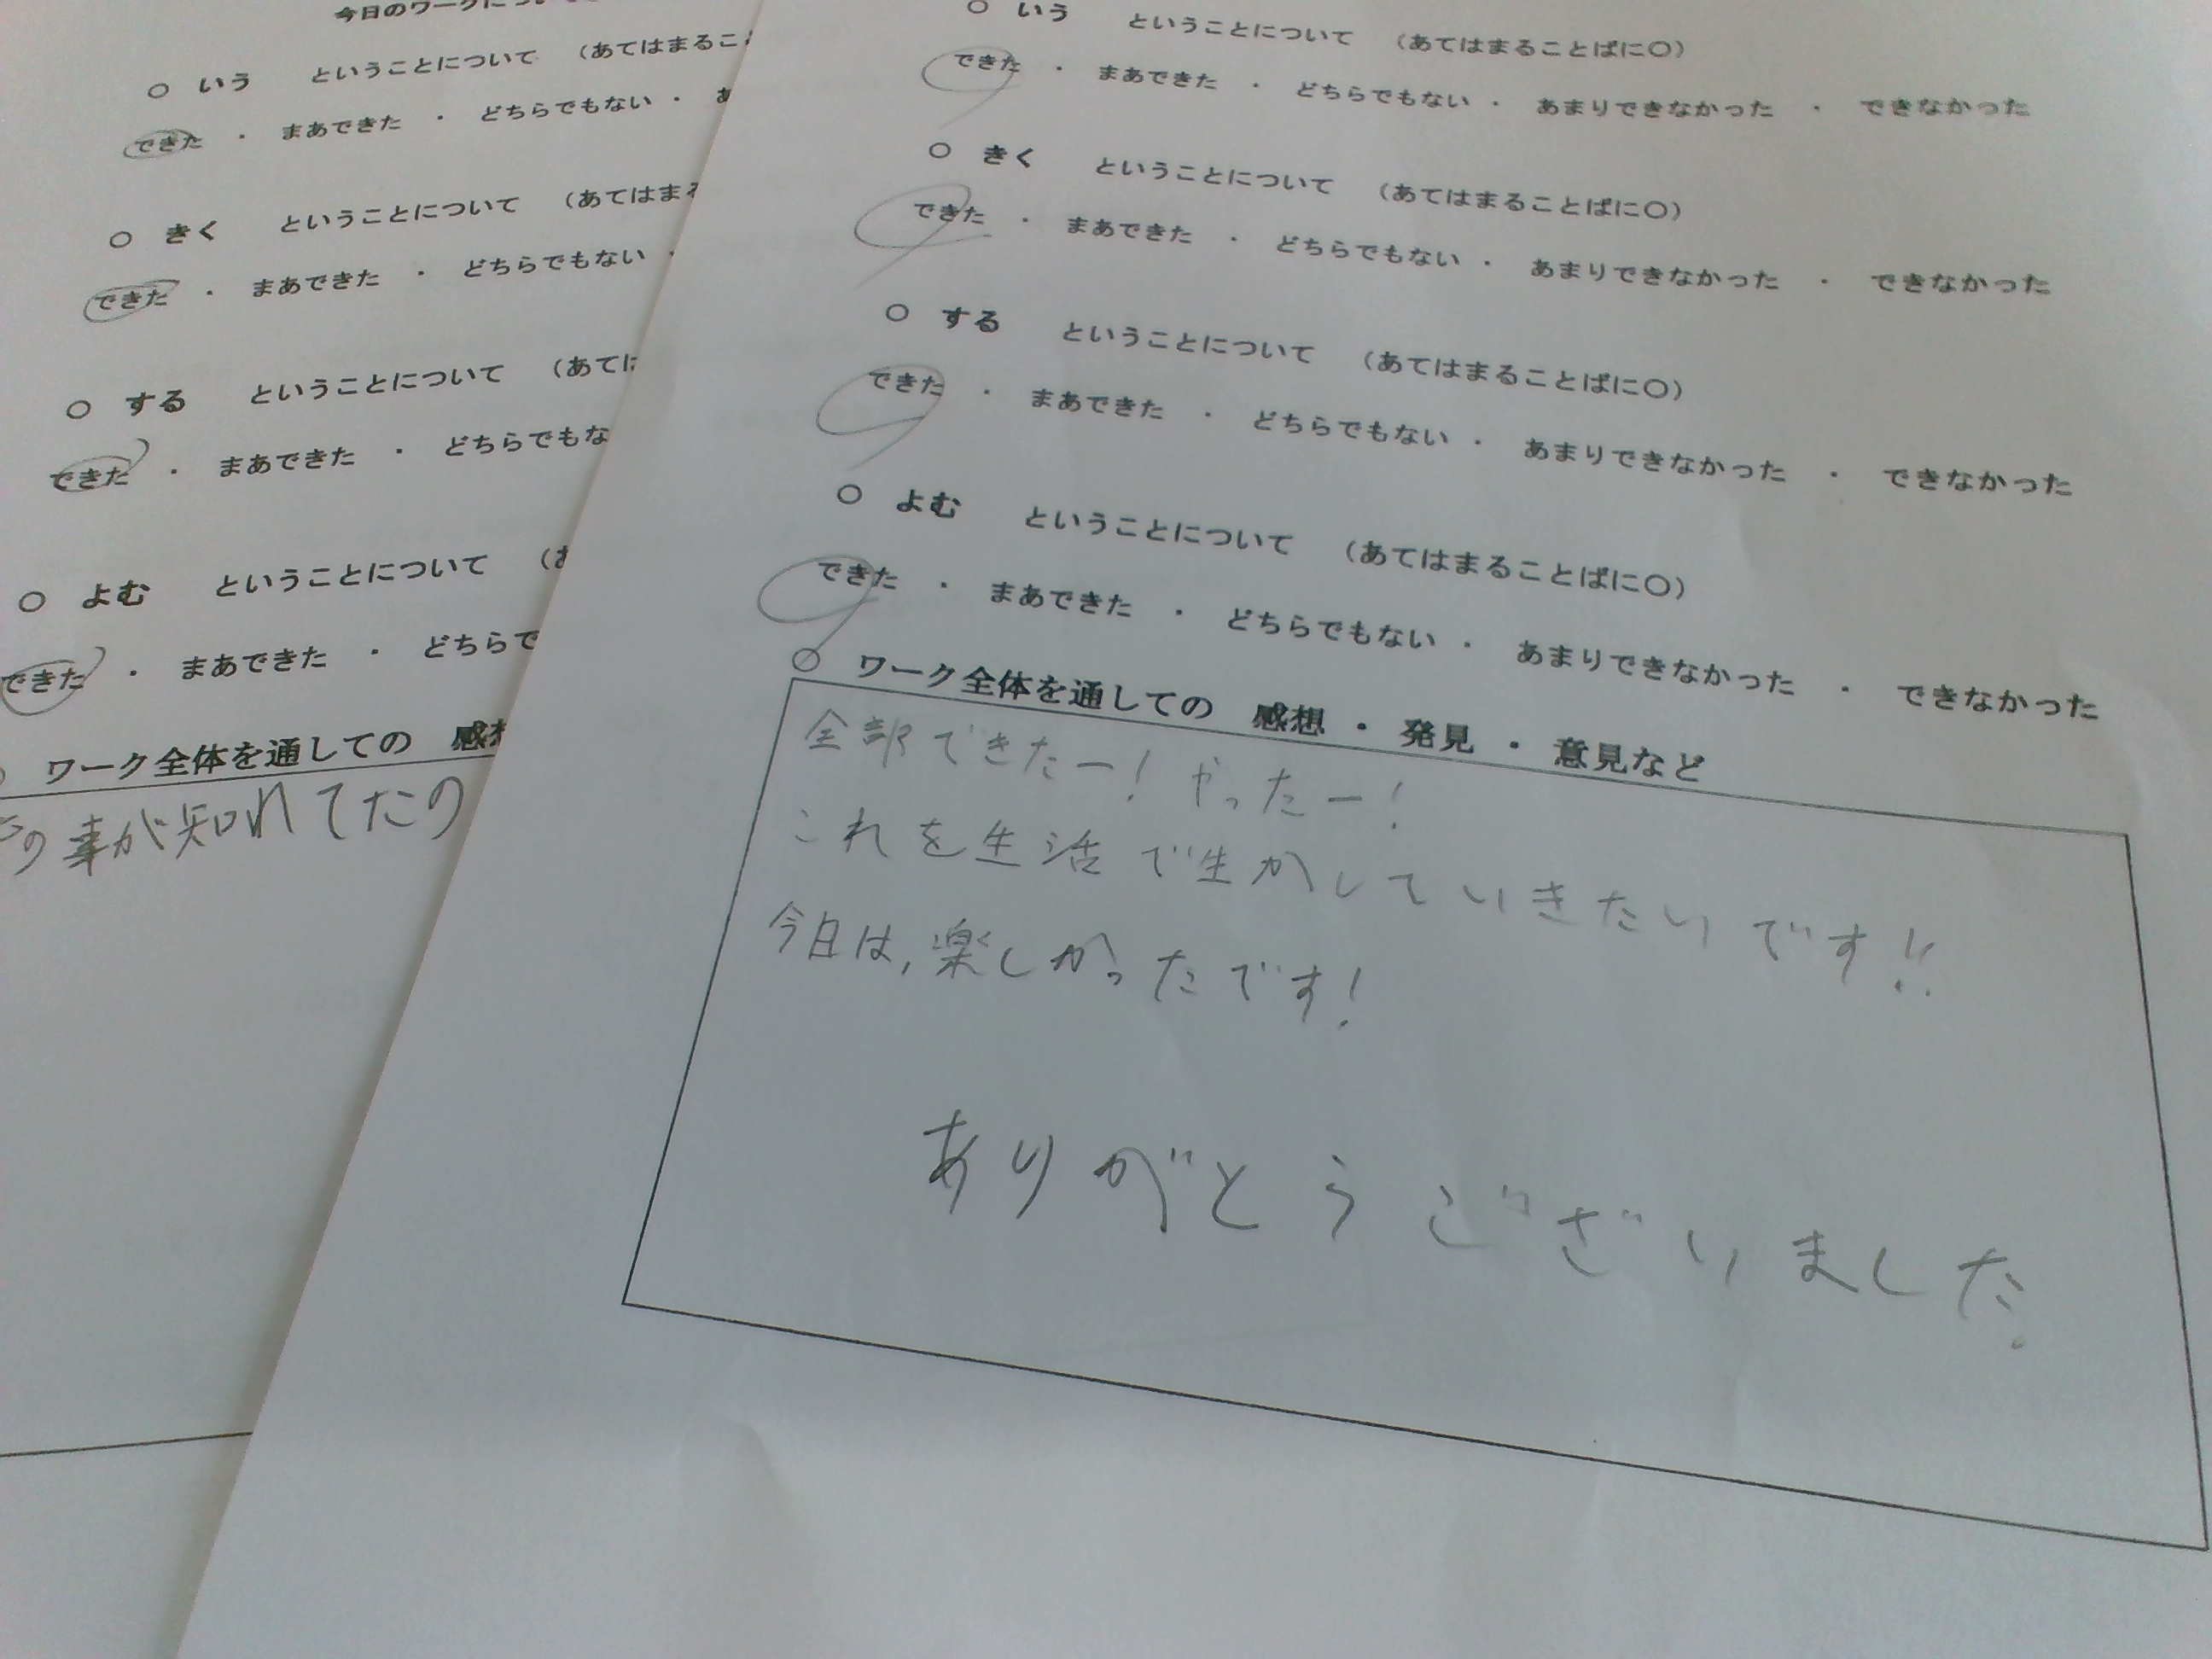 今日のワークについ
○ いう ということについて (あてはまるこ
できた ・ まあできた ・ どちらでもない ・ あ
○ きく ということについて (あてはま
できた ・ まあできた ・ どちらでもない ・
○ する ということについて (あては
できた ・ まあできた ・ どちらでもな
○ よむ ということについて (あ
できた ・ まあできた ・ どちらで
ワーク全体を通しての 感想
の事が知れてたの
○ いう ということについて (あてはまることばに○)
できた ・ まあできた ・ どちらでもない ・ あまりできなかった ・ できなかった
○ きく ということについて (あてはまることばに○)
できた ・ まあできた ・ どちらでもない ・ あまりできなかった ・ できなかった
○ する ということについて (あてはまることばに○)
できた ・ まあできた ・ どちらでもない ・ あまりできなかった ・ できなかった
○ よむ ということについて (あてはまることばに○)
できた ・ まあできた ・ どちらでもない ・ あまりできなかった ・ できなかった
○ ワーク全体を通しての 感想 ・ 発見 ・ 意見など
全部できたー!やったー!
これを生活で生かしていきたいです!!
今日は,楽しかったです!
ありがとうございました。